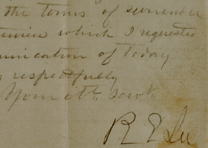 the terms of surrender
which I requested
nication of today
respectfully
Your obt. servt
R E Lee